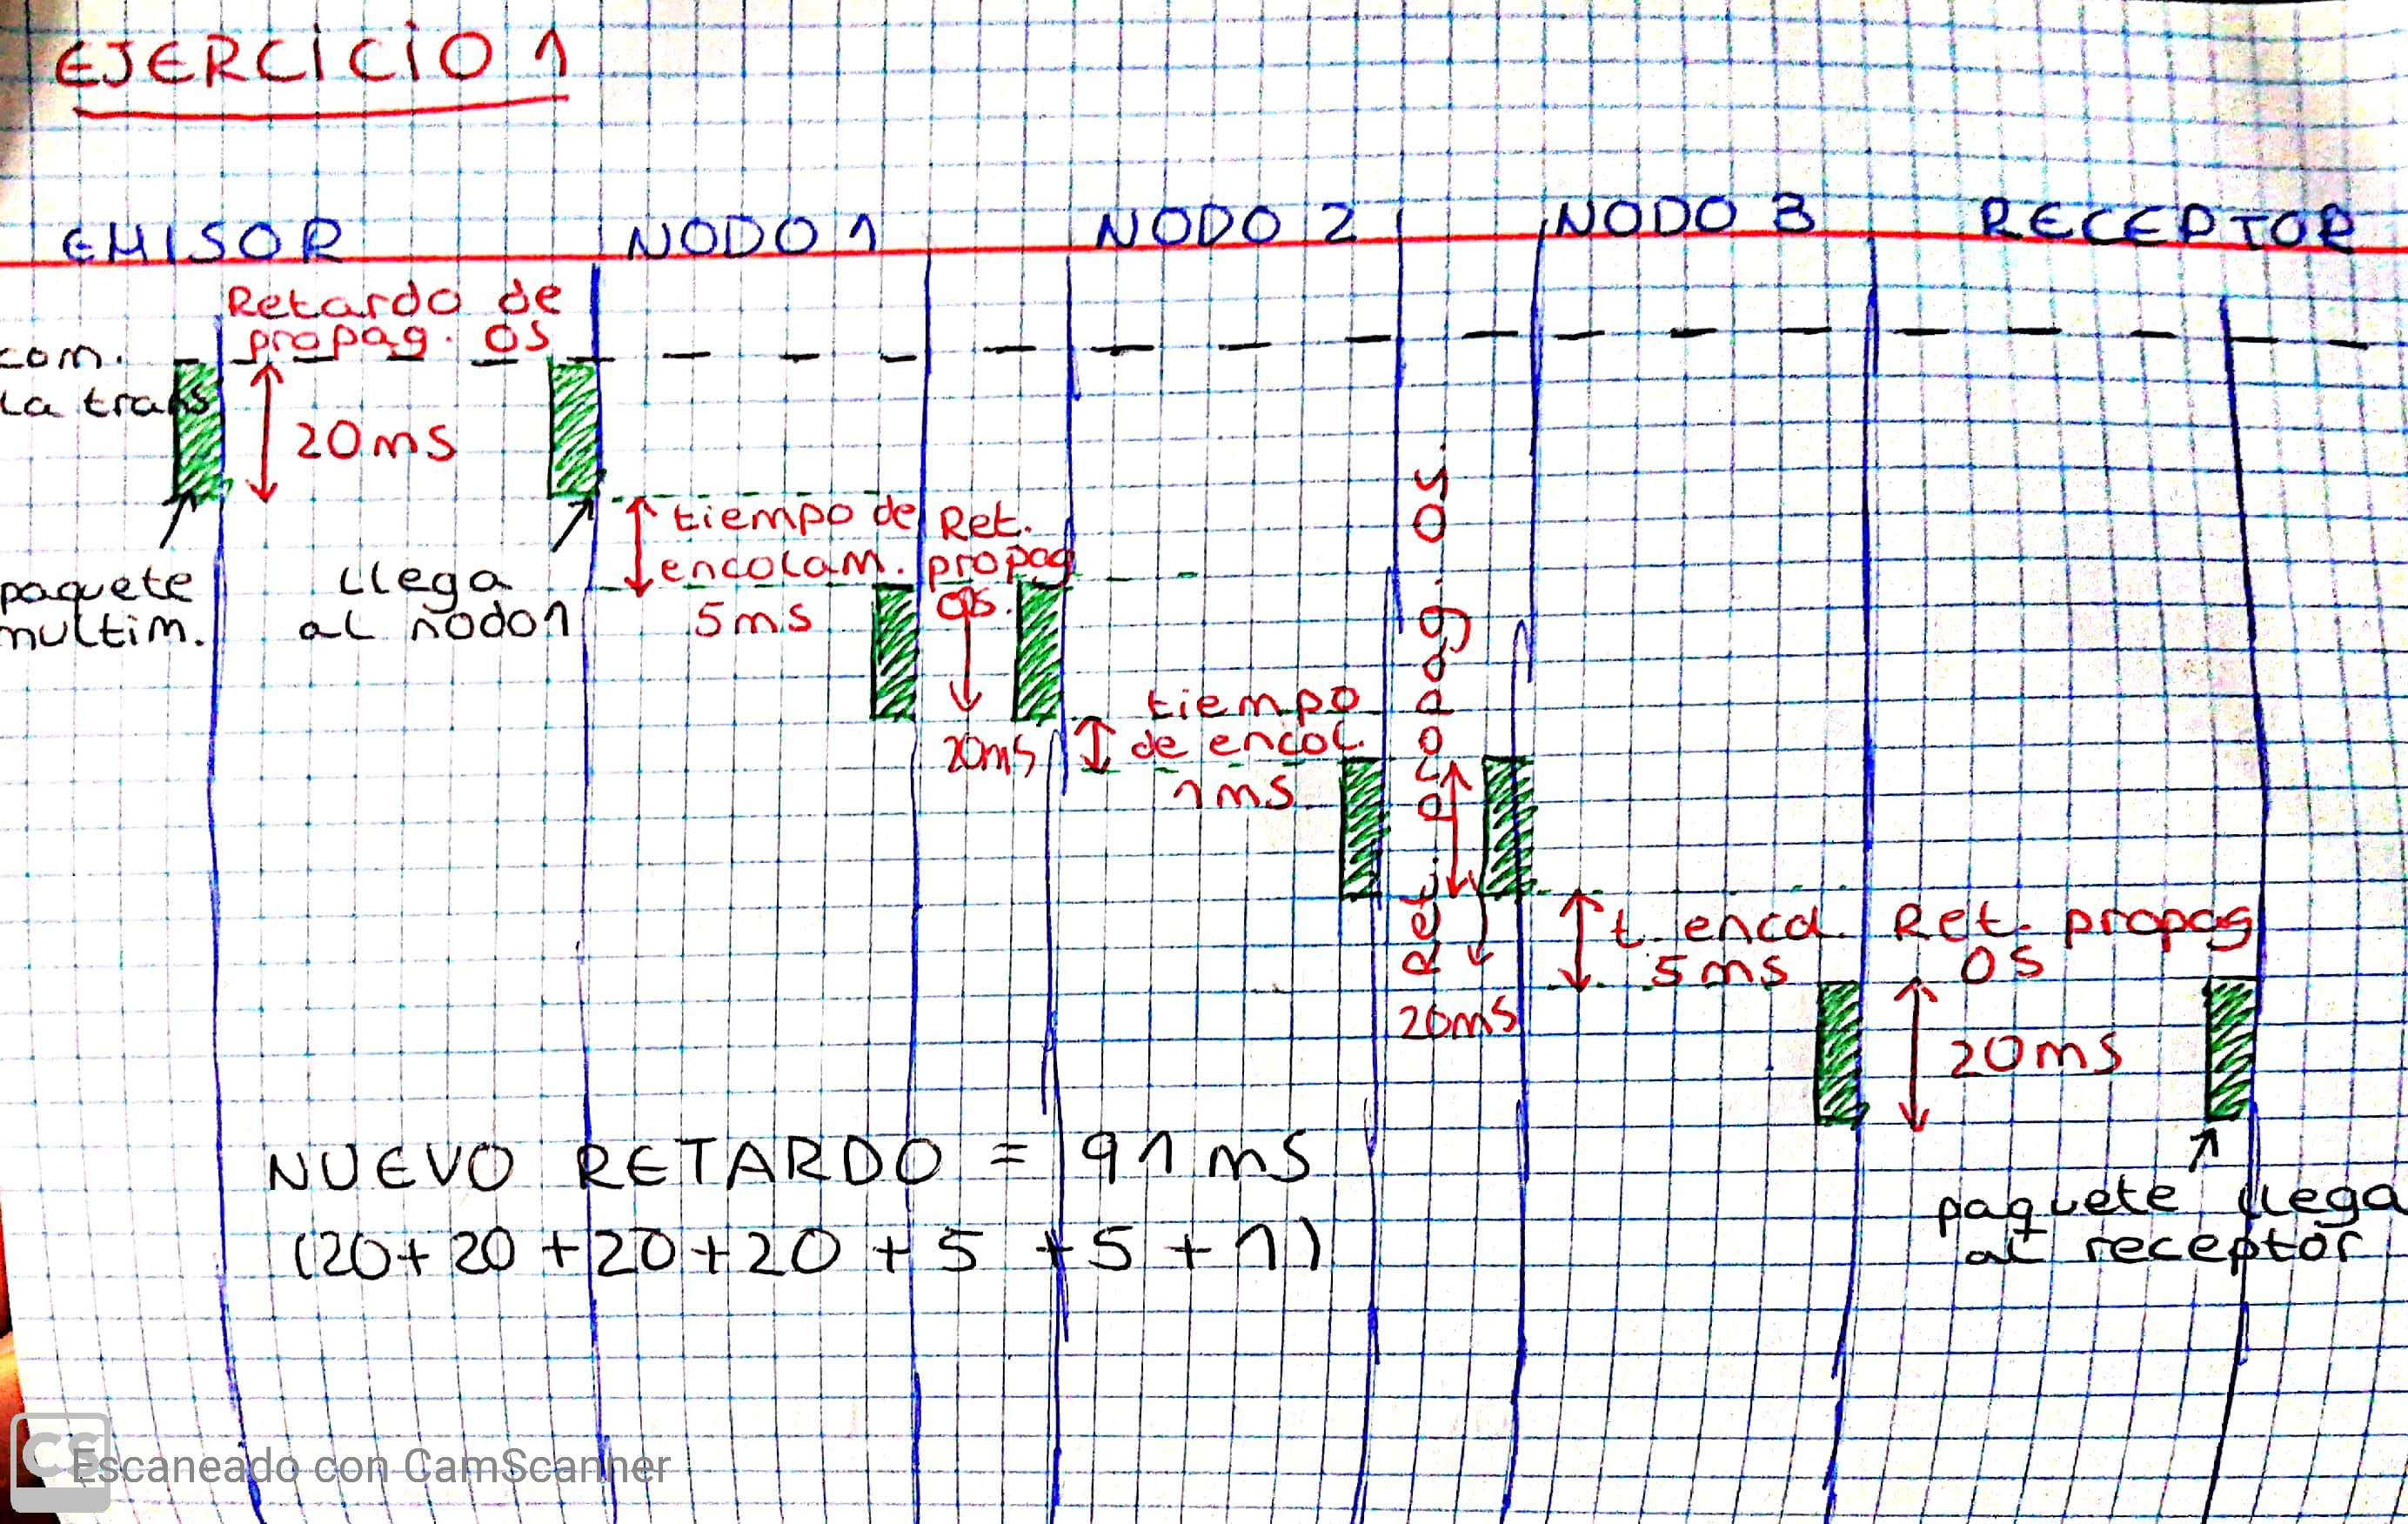 EJERCICIO 1
EMISOR NODO 1 NODO 2 NODO 3 RECEPTOR
Retardo de
propag. 0s
com.
la trans
20ms
paquete
multim.
llega
al nodo1
tiempo de
encolam.
5ms
Ret.
propag
0s.
20ms
tiempo
de encol.
1ms.
Ret. propag. 0s.
20ms
t. encol.
5ms
Ret. propag
0s
20ms
paquete llega
al receptor
NUEVO RETARDO = 91 ms
(20+20+20+20+5+5+1)
CS Escaneado con CamScanner